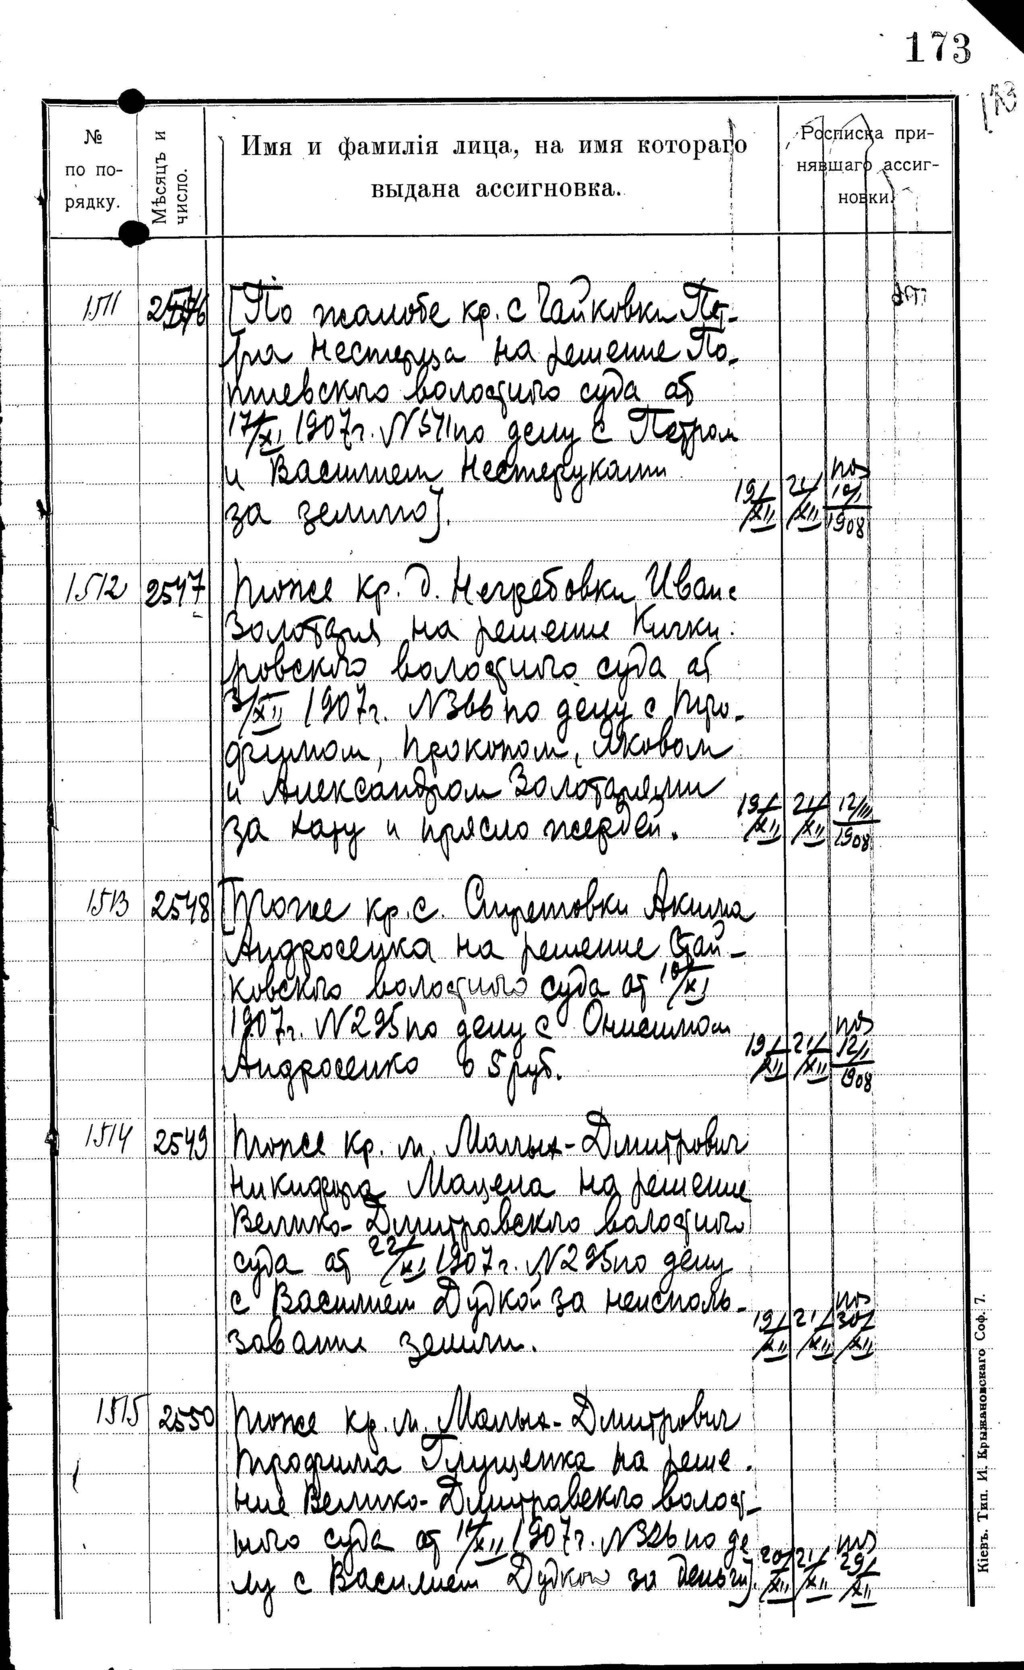 173
173
№
по по-
рядку.
Мѣсяцъ и
число.
Имя и фамилія лица, на имя котораго
выдана ассигновка.
Росписка при-
нявшаго ассиг-
новки.
1511 2546 [По жалобе кр. с. Чайковки Пет-
ра Нестерца на решение По-
тиевского волостного суда от
17/XI 1907 г. N 571 по делу с Петром
и Василием Нестеруками
за землю].
19/XII 21/XII 10/I 1908
1512 2547 Тоже кр. д. Негребовки Ивана
Золотаря на решение Кички-
ровского волостного суда от
3/XII 1907 г. N 366 по делу с Тро-
фимом, Прокопом, Яковом
и Александром Золотарями
за хату и прясло жердей.
19/XII 21/XII 12/III 1908
1513 2548 [Тоже кр. с. Стретовки Акима
Андросенка на решение Стай-
ковского волостного суда от 10/XI
1907 г. N 295 по делу с Онисимом
Андросенко о 5 руб.
19/XII 21/XII 12/I 1908
1514 2549 Тоже кр. м. Малых-Дмитрович
Никифора Мацепа на решение
Велико-Дмитровского волостного
суда от 22/XI 1907 г. N 295 по делу
с Василием Дудкой за неисполь-
зование земли.
19/XII 21/XII 30/XII
1515 2550 Тоже кр. м. Малых-Дмитрович
Трофима Глущенка на реше-
ние Велико-Дмитровского волост-
ного суда от /XII 1907 г. N 326 по де-
лу с Василием Дудкою за деньги].
20/XII 21/XII 29/XII
Кіевъ. Тип. И. Крыжановскаго Соф. 7.